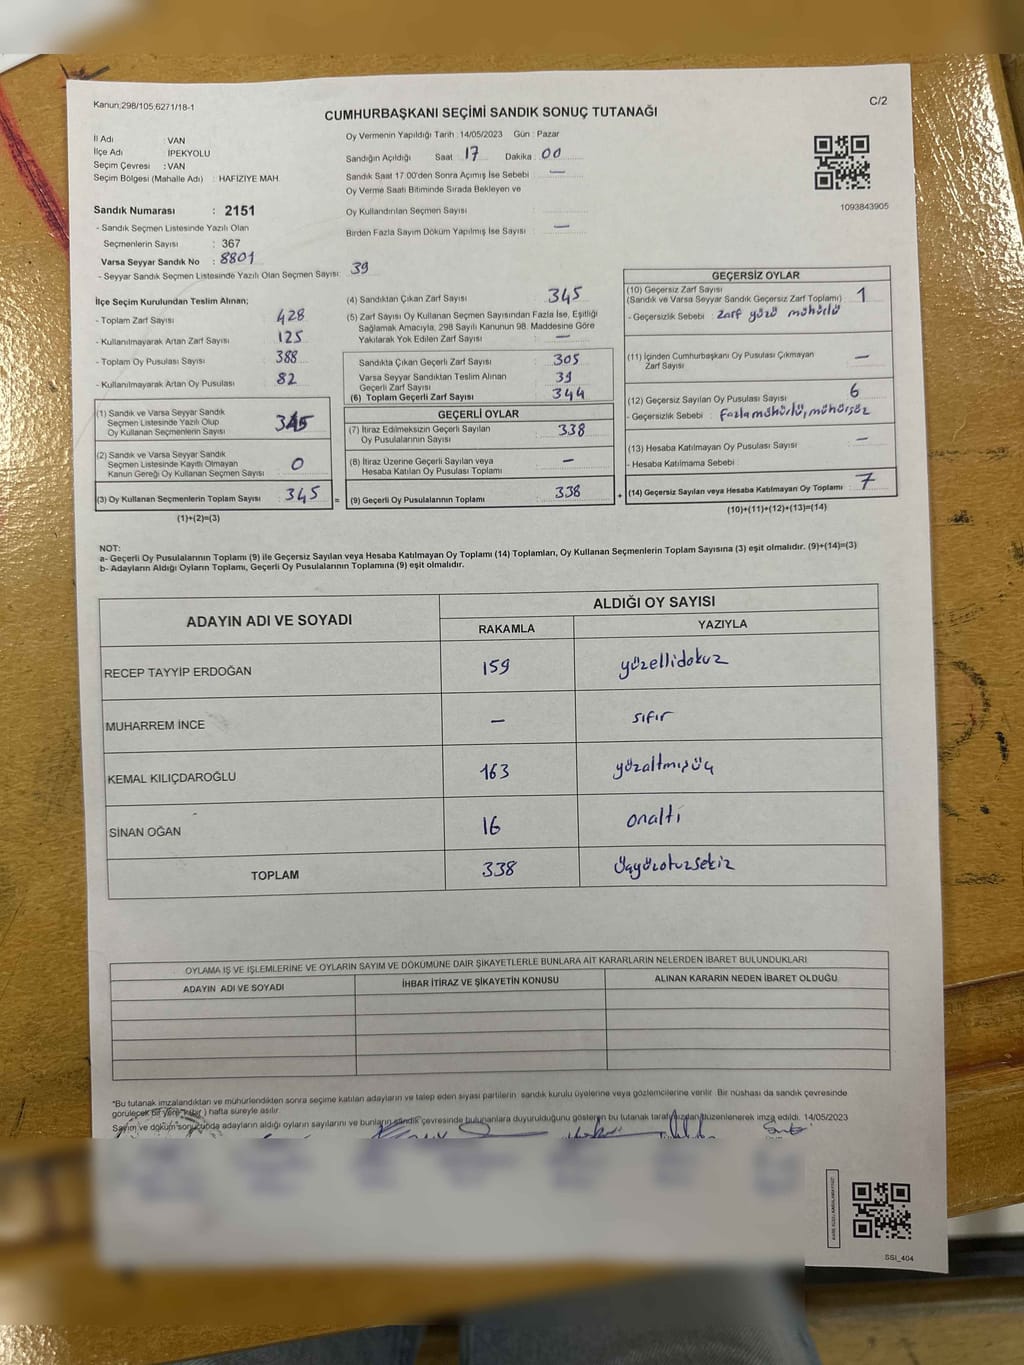 Kanun:298/105,6271/18-1
C/2
CUMHURBAŞKANI SEÇİMİ SANDIK SONUÇ TUTANAĞI
İl Adı : VAN
İlçe Adı : İPEKYOLU
Seçim Çevresi : VAN
Seçim Bölgesi (Mahalle Adı) : HAFİZİYE MAH.
Sandık Numarası : 2151
- Sandık Seçmen Listesinde Yazılı Olan
Seçmenlerin Sayısı : 367
Varsa Seyyar Sandık No : 8801
- Seyyar Sandık Seçmen Listesinde Yazılı Olan Seçmen Sayısı: 39
Oy Vermenin Yapıldığı Tarih : 14/05/2023 Gün : Pazar
Sandığın Açıldığı Saat : 17 Dakika : 00
Sandık Saat 17:00'den Sonra Açımış İse Sebebi : —
Oy Verme Saati Bitiminde Sırada Bekleyen ve
Oy Kullandırılan Seçmen Sayısı :
Birden Fazla Sayım Döküm Yapılmış İse Sayısı : —
1093843905
İlçe Seçim Kurulundan Teslim Alınan;
- Toplam Zarf Sayısı : 428
- Kullanılmayarak Artan Zarf Sayısı : 125
- Toplam Oy Pusulası Sayısı : 388
- Kullanılmayarak Artan Oy Pusulası : 82
(1) Sandık ve Varsa Seyyar Sandık
Seçmen Listesinde Yazılı Olup
Oy Kullanan Seçmenlerin Sayısı : 345
(2) Sandık ve Varsa Seyyar Sandık
Seçmen Listesinde Kayıtlı Olmayan
Kanun Gereği Oy Kullanan Seçmen Sayısı : 0
(3) Oy Kullanan Seçmenlerin Toplam Sayısı : 345 =
(1)+(2)=(3)
(4) Sandıktan Çıkan Zarf Sayısı : 345
(5) Zarf Sayısı Oy Kullanan Seçmen Sayısından Fazla İse, Eşitliği
Sağlamak Amacıyla, 298 Sayılı Kanunun 98. Maddesine Göre
Yakılarak Yok Edilen Zarf Sayısı : —
Sandıkta Çıkan Geçerli Zarf Sayısı : 305
Varsa Seyyar Sandıktan Teslim Alınan
Geçerli Zarf Sayısı : 39
(6) Toplam Geçerli Zarf Sayısı : 344
GEÇERLİ OYLAR
(7) İtiraz Edilmeksizin Geçerli Sayılan
Oy Pusulalarının Sayısı : 338
(8) İtiraz Üzerine Geçerli Sayılan veya
Hesaba Katılan Oy Pusulası Toplamı : —
(9) Geçerli Oy Pusulalarının Toplamı : 338 +
GEÇERSİZ OYLAR
(10) Geçersiz Zarf Sayısı
(Sandık ve Varsa Seyyar Sandık Geçersiz Zarf Toplamı) : 1
- Geçersizlik Sebebi : Zarf yüzü mühürlü
(11) İçinden Cumhurbaşkanı Oy Pusulası Çıkmayan
Zarf Sayısı : —
(12) Geçersiz Sayılan Oy Pusulası Sayısı : 6
- Geçersizlik Sebebi : Fazla mühürlü, mühürsüz
(13) Hesaba Katılmayan Oy Pusulası Sayısı : —
- Hesaba Katılmama Sebebi :
(14) Geçersiz Sayılan veya Hesaba Katılmayan Oy Toplamı : 7
(10)+(11)+(12)+(13)=(14)
NOT:
a- Geçerli Oy Pusulalarının Toplamı (9) ile Geçersiz Sayılan veya Hesaba Katılmayan Oy Toplamı (14) Toplamları, Oy Kullanan Seçmenlerin Toplam Sayısına (3) eşit olmalıdır. (9)+(14)=(3)
b- Adayların Aldığı Oyların Toplamı, Geçerli Oy Pusulalarının Toplamına (9) eşit olmalıdır.
ADAYIN ADI VE SOYADI ALDIĞI OY SAYISI
RAKAMLA YAZIYLA
RECEP TAYYİP ERDOĞAN 159 yüzellidokuz
MUHARREM İNCE — sıfır
KEMAL KILIÇDAROĞLU 163 yüzaltmışüç
SİNAN OĞAN 16 onaltı
TOPLAM 338 üçyüzotuzsekiz
OYLAMA İŞ VE İŞLEMLERİNE VE OYLARIN SAYIM VE DÖKÜMÜNE DAİR ŞİKAYETLERLE BUNLARA AİT KARARLARIN NELERDEN İBARET BULUNDUKLARI
ADAYIN ADI VE SOYADI İHBAR İTİRAZ VE ŞİKAYETİN KONUSU ALINAN KARARIN NEDEN İBARET OLDUĞU
*Bu tutanak imzalandıktan ve mühürlendikten sonra seçime katılan adayların ve talep eden siyasi partilerin sandık kurulu üyelerine veya gözlemcilerine verilir. Bir nüshası da sandık çevresinde
görülecek bir yere ( bir ) hafta süreyle asılır.
Sayım ve döküm sonucuda adayların aldığı oyların sayılarını ve bunların sandık çevresinde bulunanlara duyurulduğunu gösteren bu tutanak düzenlenerek imza edildi. 14/05/2023
SSI_404